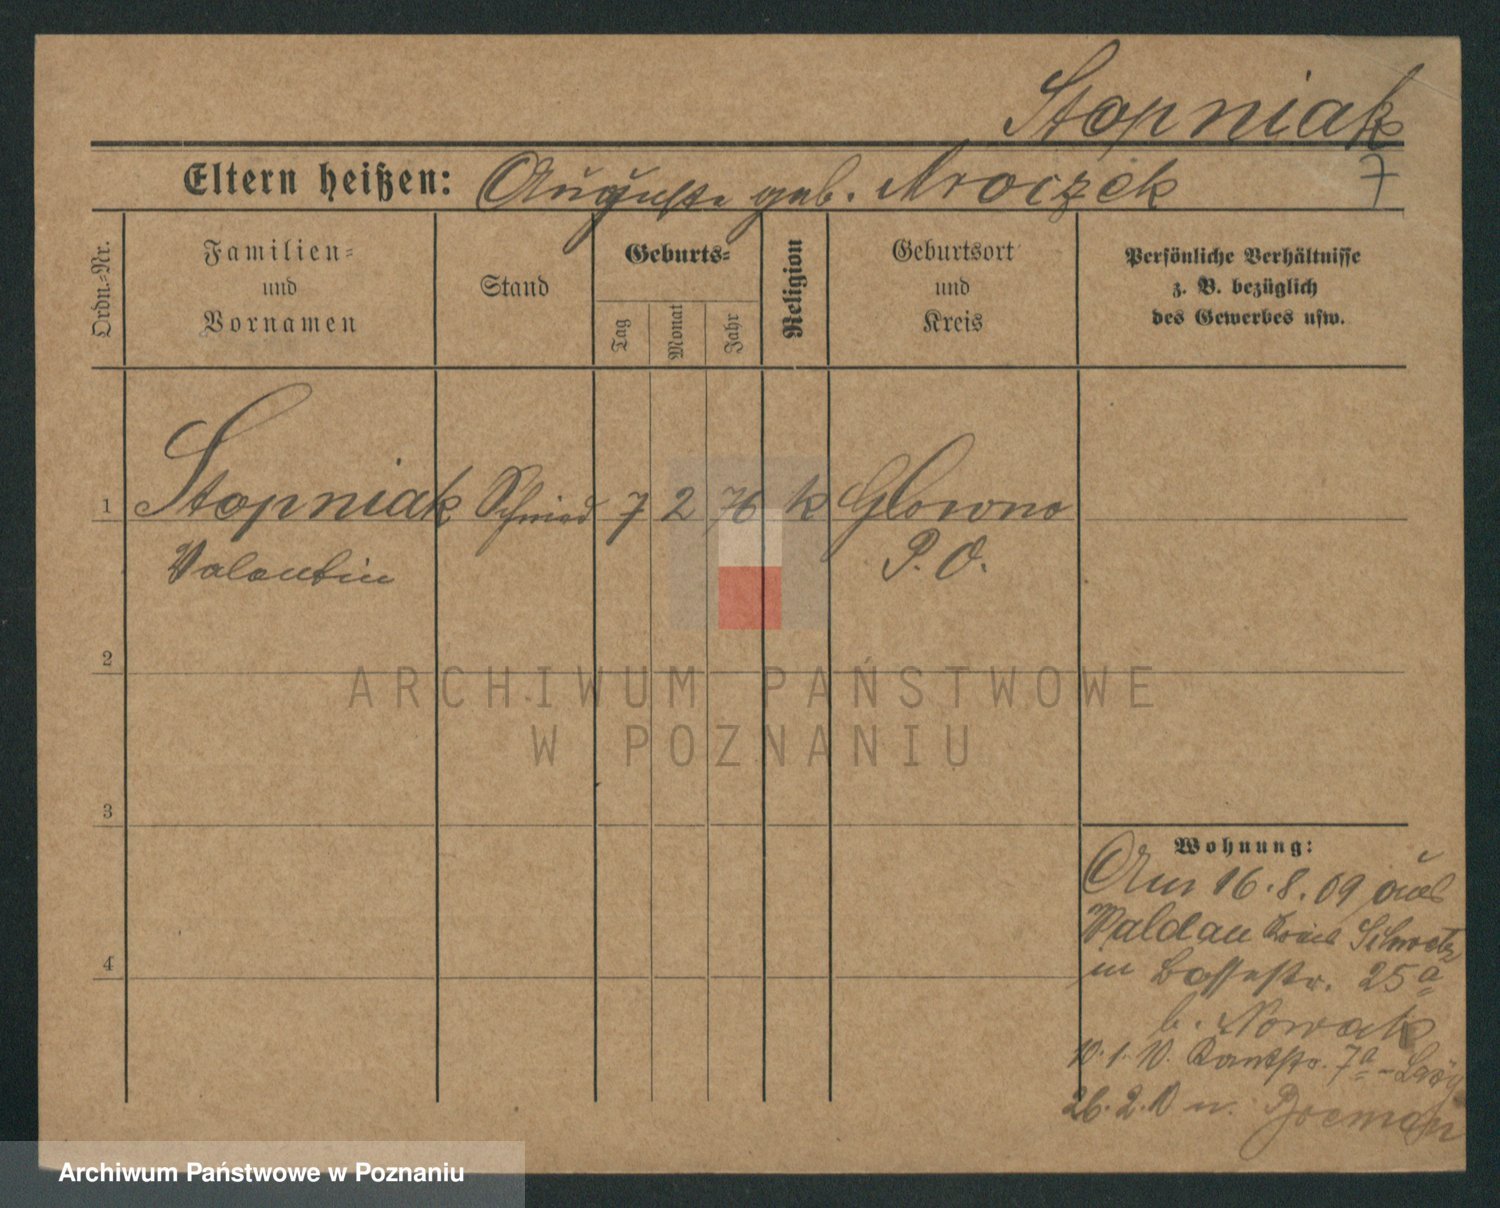 Stopniak
7
Eltern heißen: Auguste geb. Mroczek
Ordn.=Nr.
Familien=
und
Vornamen
Stand
Geburts=
Tag
Monat
Jahr
Religion
Geburtsort
und
Kreis
Persönliche Verhältnisse
z. B. bezüglich
des Gewerbes usw.
1 Stopniak Schmied 7 2 76 k Glowno
Valentin P. O.
2
3
4
Wohnung:
Am 16.8.09 aus
Waldau Kreis Schwetz
in Bossestr. 25a
b. Nowak
10.1.10. Kantstr. 7a -
26.2.10 n. Bremen
ARCHIWUM PAŃSTWOWE
W POZNANIU
Archiwum Państwowe w Poznaniu